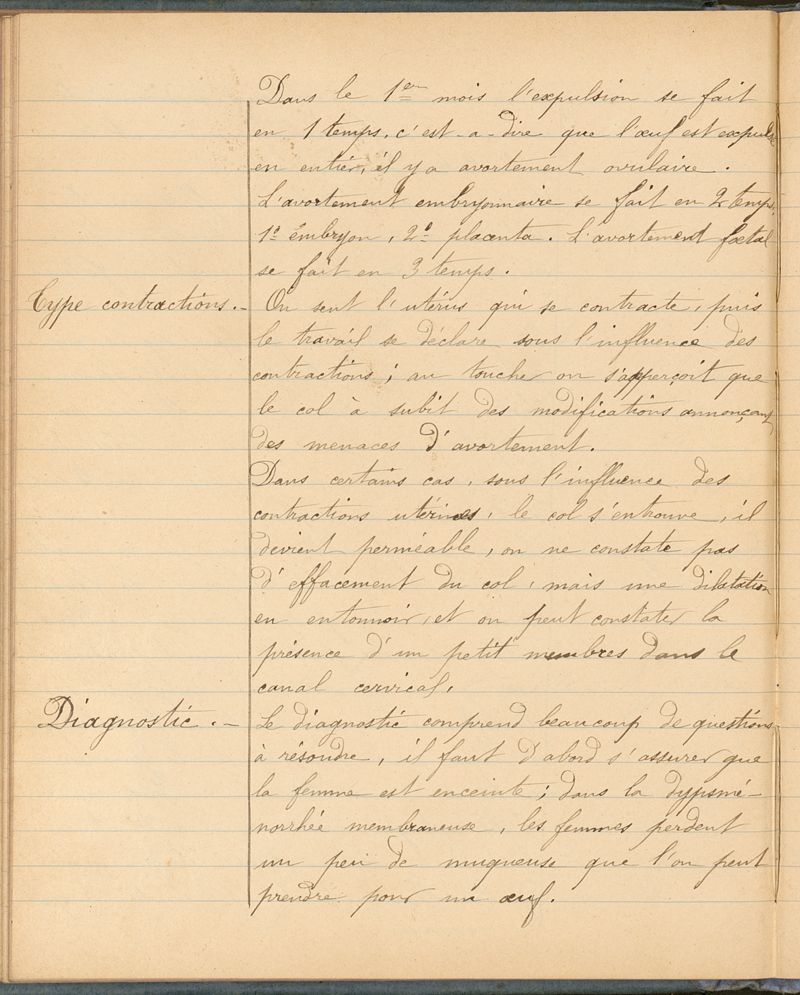 Dans le 1er mois l'expulsion se fait
en 1 temps, c'est-a-dire que l'œuf est expulsé
en entier, il y a avortement ovulaire.
L'avortement embryonnaire se fait en 2 temps,
1º embryon, 2º placenta. L'avortement fœtal
se fait en 3 temps.
Type contractions.- On sent l'utérus qui se contracte, puis
le travail se déclare sous l'influence des
contractions; au toucher on s'apperçoit que
le col à subit des modifications annonçant
des menaces d'avortement.
Dans certains cas, sous l'influence des
contractions utérines, le col s'entrouve, il
devient perméable, on ne constate pas
d'effacement du col, mais une dilatation
en entonnoir, et on peut constater la
présence d'un petit membres dans le
canal cervical.
Diagnostic.- Le diagnostic comprend beaucoup de questions
à résoudre, il faut d'abord s'assurer que
la femme est enceinte; dans la dypsmé-
norrhée membraneuse, les femmes perdent
un peu de muqueuse que l'on peut
prendre pour un œuf.